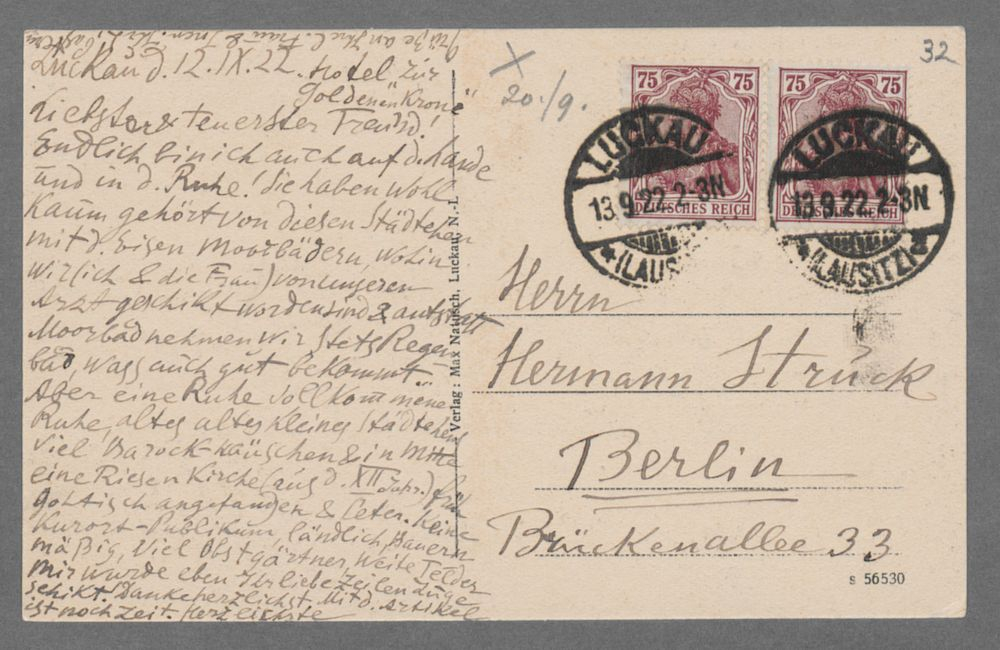 Luckau d. 12.IX.22. Hotel zur
"Goldenen Krone"
Liebster & teuerster Freund!
Endlich bin ich auch auf d. Lande
und in d. Ruhe! Sie haben wohl
kaum gehört von diesen Städtchen
mit d. Eisen Moorbädern, wohin
wir (ich & die Frau) von unseren
Arzt geschikt worden sind & anstatt
Moorbad nehmen wir stets Regen
bad, wass auch gut bekommt
Aber eine Ruhe vollkommene
Ruhe, altes altes kleines Städtchen
viel Barock-Häuschen & in Mitte
eine Riesen Kirche (aus d. XII Jahr.) früh
gothisch angefangen & später. Keine
Kurort-Publikum, ländlich, Bauern
mäßig, viel Obstgärtner, weite Felder
Mir wurde eben Ihr liebe Zeilen zuge
schikt. Danke herzlichst. Mit d. Artikel
ist noch Zeit. Herzlichste
Grüße an Ihre l. Frau &
Verlag: Max Nattusch, Luckau, N.-L.
X
20./9.
32
75 75
DEUTSCHES REICH
75 75
DEUTSCHES REICH
LUCKAU
13.9.22.2-3N
*(LAUSITZ)
LUCKAU
13.9.22.2-3N
*(LAUSITZ)a
Herrn
Hermann Struck
Berlin
Brückenallee 33
s 56530